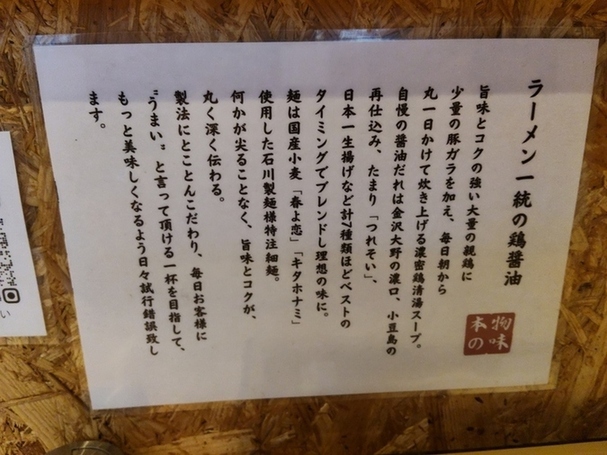 ラーメン一統の鶏醤油
旨味とコクの強い大量の親鶏に
少量の豚ガラを加え、毎日朝から
丸一日かけて炊き上げる濃密鶏清湯スープ。
自慢の醤油だれは金沢大野の濃口、小豆島の
再仕込み、たまり「つれそい」、
日本一生揚げなど計7種類ほどベストの
タイミングでブレンドし理想の味に。
麺は国産小麦「春よ恋」「キタホナミ」
使用した石川製麺様特注細麺。
何かが尖ることなく、旨味とコクが、
丸く深く伝わる。
製法にとことんこだわり、毎日お客様に
“うまい”と言って頂ける一杯を目指して、
もっと美味しくなるよう日々試行錯誤致し
ます。
本物の味